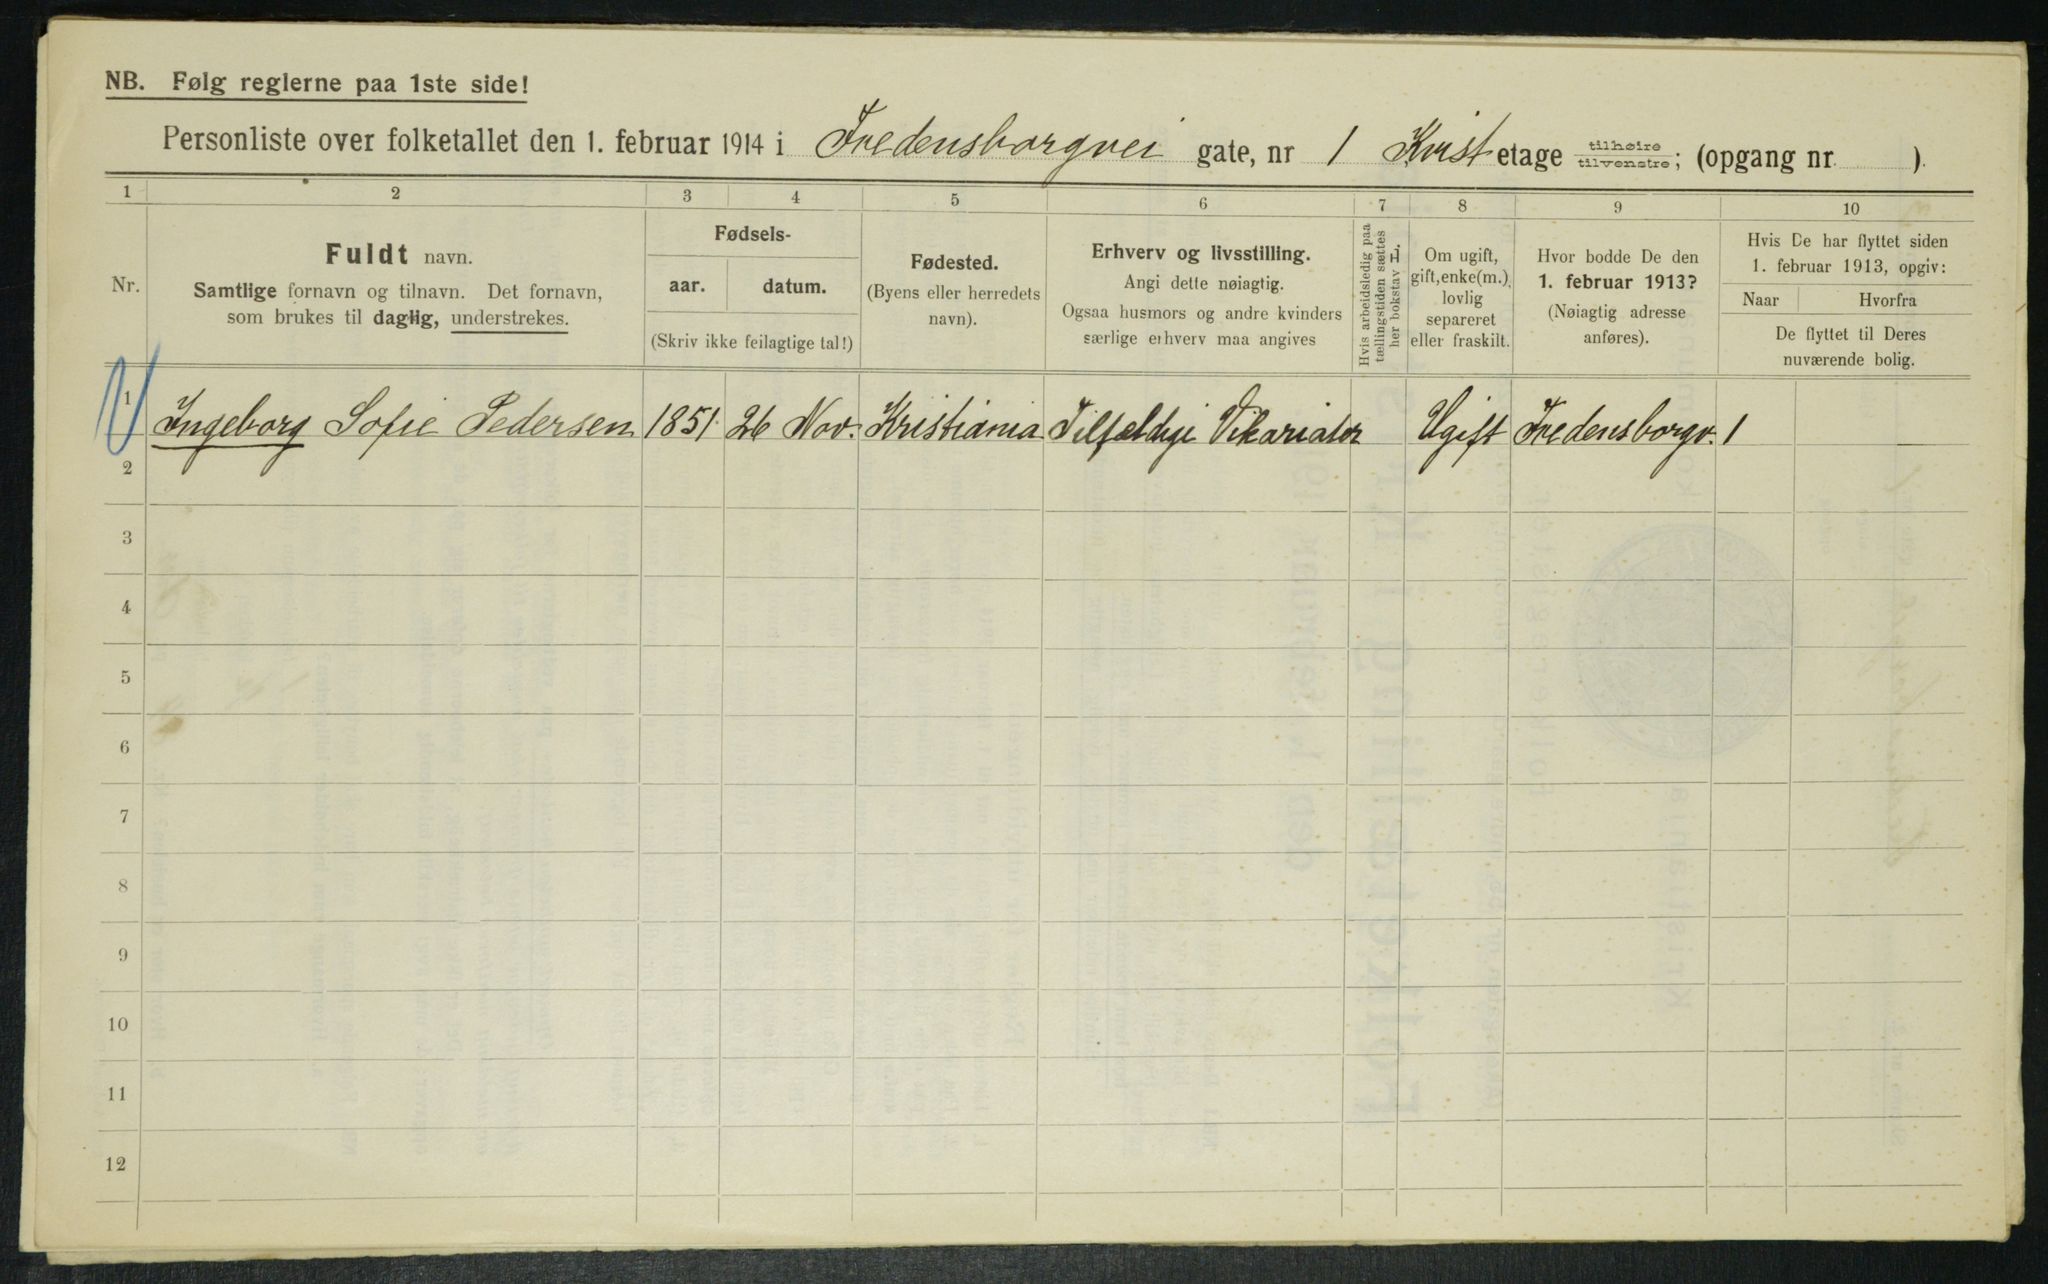 NB. Følg reglerne paa 1ste side!
Personliste over folketallet den 1. februar 1914 i Fredensborgvei gate, nr 1 Kvist etage tilhøire tilvenstre; (opgang nr. ).
1 2 3 4 5 6 7 8 9 10
Nr.
Fuldt navn.
Samtlige fornavn og tilnavn. Det fornavn,
som brukes til daglig, understrekes.
Fødsels-
aar. datum.
(Skriv ikke feilagtige tal!)
Fødested.
(Byens eller herredets
navn).
Erhverv og livsstilling.
Angi dette nøiagtig.
Ogsaa husmors og andre kvinders
særlige erhverv maa angives
Hvis arbeidsledig paa
tællingstiden sættes
her bokstav L.
Om ugift,
gift, enke(m.),
lovlig
separeret
eller fraskilt.
Hvor bodde De den
1. februar 1913?
(Nøiagtig adresse
anføres).
Hvis De har flyttet siden
1. februar 1913, opgiv:
Naar Hvorfra
De flyttet til Deres
nuværende bolig.
1 Ingeborg Sofie Pedersen 1851 26 Nov. Kristiania Tilfældige Vikariater Ugift Fredensborgv. 1
2
3
4
5
6
7
8
9
10
11
12